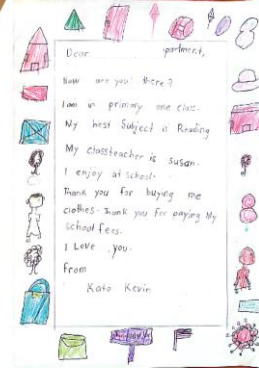 Dear partment,
How are you there?
I am in primary one class.
My best Subject is Reading
My classteacher is susan.
I enjoy at school.
Thank you for buying me
clothes. Thank you for paying My
school fees.
I Love you.
From
Kato Kevin